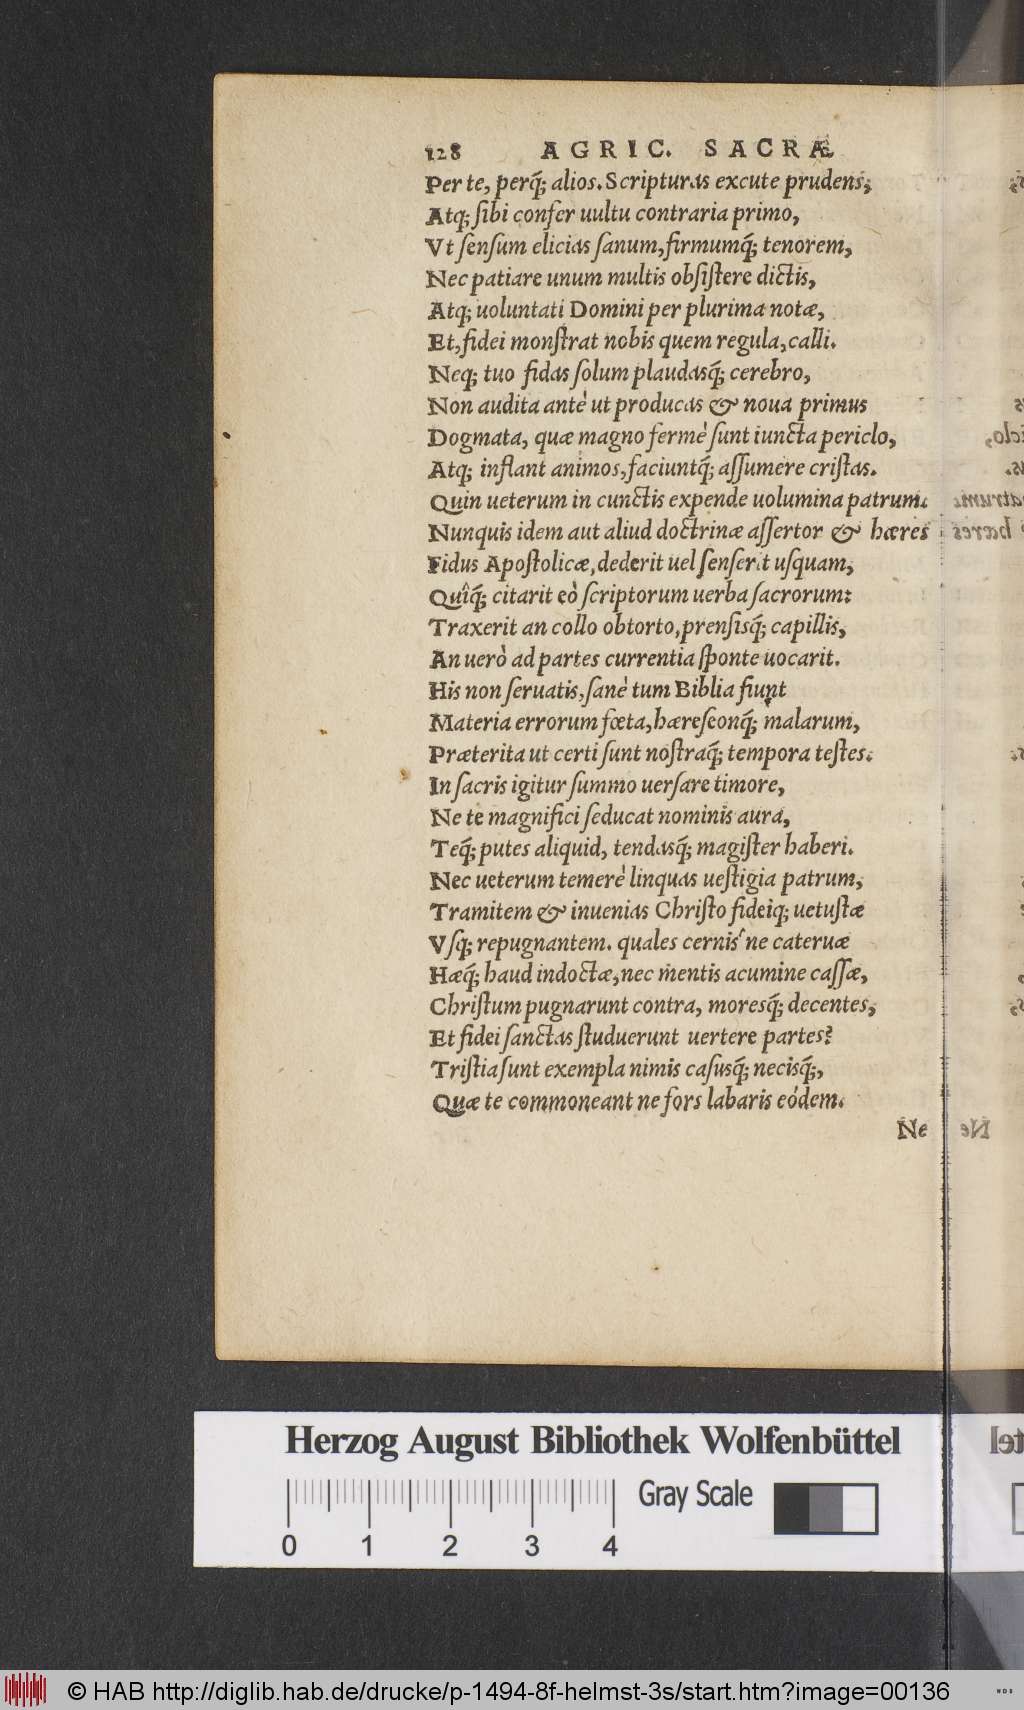 128 AGRIC. SACRÆ
Per te, perq́; alios. Scripturas excute prudens,
Atq; ſibi confer uultu contraria primo,
Vt ſenſum elicias ſanum, firmumq́; tenorem,
Nec patiare unum multis obſiſtere dictis,
Atq; uoluntati Domini per plurima notæ,
Et, fidei monſtrat nobis quem regula, calli.
Neq; tuo fidas ſolum plaudasq́; cerebro,
Non audita antè ut producas & noua primus
Dogmata, quæ magno fermè ſunt iuncta periclo,
Atq; inflant animos, faciuntq́; aſſumere criſtas.
Quin ueterum in cunctis expende uolumina patrum:
Nunquis idem aut aliud doctrinæ aſſertor & hæres
Fidus Apoſtolicæ, dederit uel ſenſerit uſquam,
Quîq́; citarit eò ſcriptorum uerba ſacrorum:
Traxerit an collo obtorto, prenſisq́; capillis,
An uerò ad partes currentia ſponte uocarit.
His non ſeruatis, ſanè tum Biblia fiunt
Materia errorum fœta, hæreſeonq́; malarum,
Præterita ut certi ſunt noſtraq́; tempora teſtes.
In ſacris igitur ſummo uerſare timore,
Ne te magnifici ſeducat nominis aura,
Teq́; putes aliquid, tendasq́; magiſter haberi.
Nec ueterum temerè linquas ueſtigia patrum,
Tramitem & inuenias Chriſto fideiq; uetuſtæ
Vſq; repugnantem. quales cernis'ne cateruæ
Hæq́; haud indoctæ, nec mentis acumine caſſæ,
Chriſtum pugnarunt contra, moresq́; decentes,
Et fidei ſanctas ſtuduerunt uertere partes?
Triſtia ſunt exempla nimis caſusq́; necisq́;,
Quæ te commoneant ne fors labaris eódem.
Ne
Herzog August Bibliothek Wolfenbüttel
Gray Scale
0 1 2 3 4
© HAB http://diglib.hab.de/drucke/p-1494-8f-helmst-3s/start.htm?image=00136